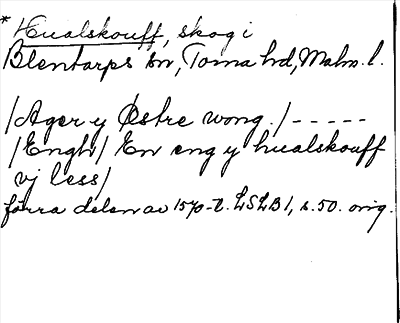 * Hualskouff, skog i
Blentarps sn, Torna hd, Malm. l.
/Ager y Østre wong./-----
/Engh/ En eng y hualskouff
vj less/
förra delen av 1570-t. LSLB 1, s. 50. orig.